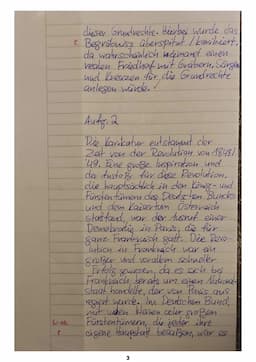 dieser Grundrechte. Hierbei wurde das
Begräbnis überspitzt / karikiert,
da wahrscheinlich niemand einen
realen Friedhof mit Gräbern, Särgen
und Kreuzen für die Grundrechte
anlegen würde.
Aufg. 2
Die Karikatur entstammt der
Zeit von der Revolution von 1848/
49. Eine große Inspiration und
da Anstoß für diese Revolution,
die hauptsächlich in den König- und
Fürstentümern des Deutschen Bundes
und dem Kaisertum Österreich
stattfand, war der einer
Demokratie in Paris, die für
ganz Frankreich galt. Die Revo-
lution in Frankreich war ein
großer und vorallem schneller
Erfolg gewesen, da es sich bei
Frankreich bereits um einen National-
staat handelte, der von Paris aus
regiert wurde. Im Deutschen Bund,
mit vielen kleinen oder großen
Fürstentümern, die jeder ihre
eigene Hauptstadt besaßen, war es
3